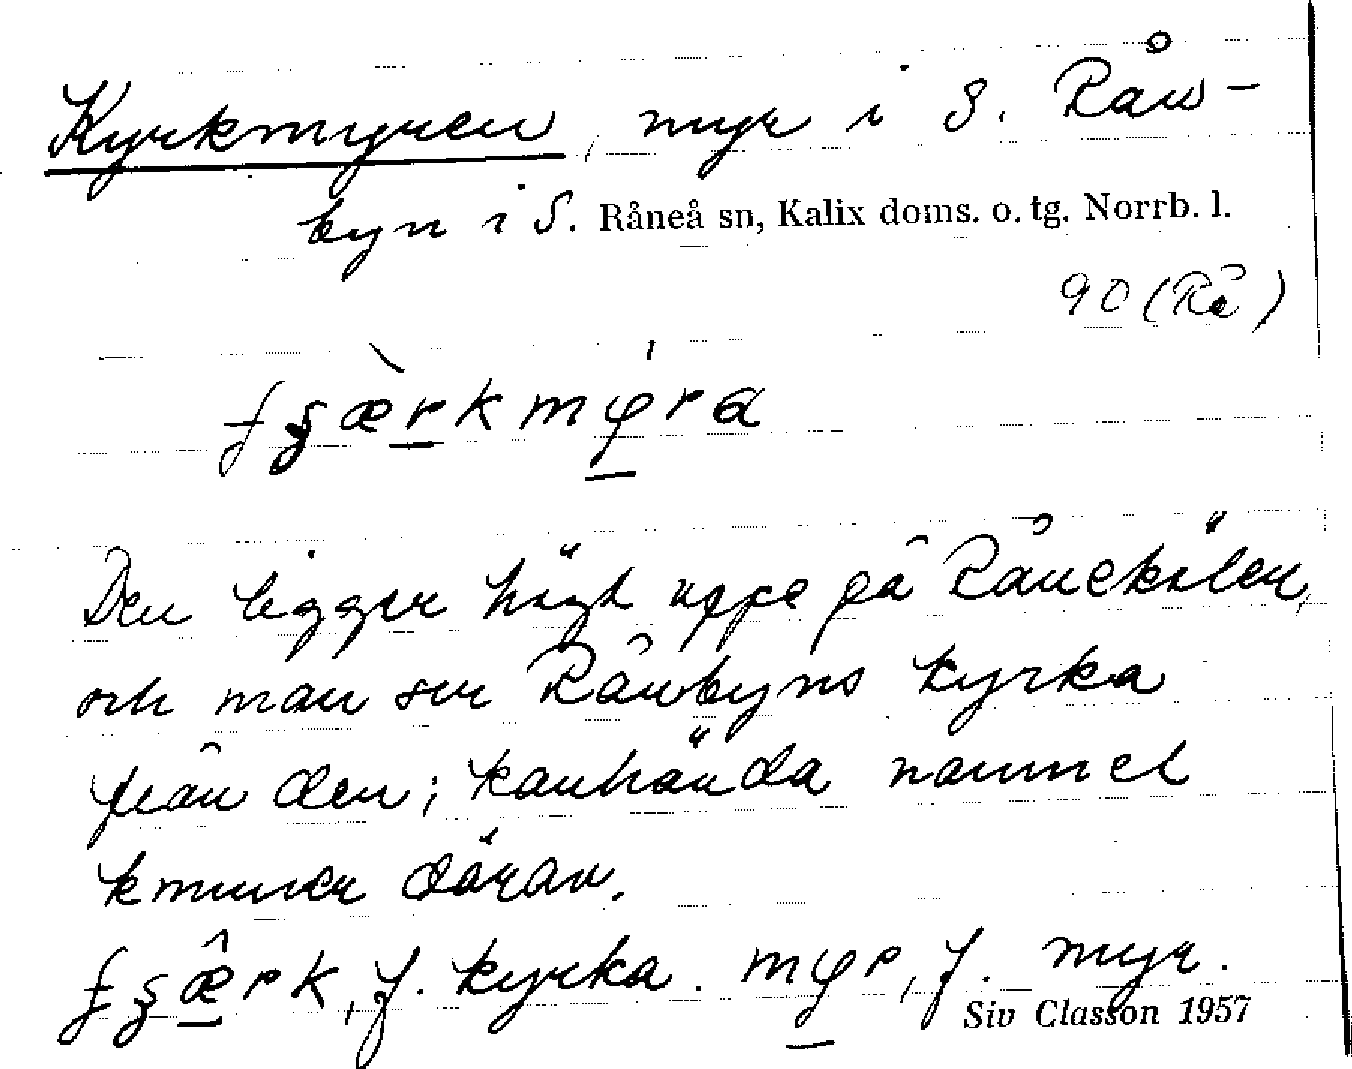 Kyrkmyren, myr i S. Råw-
byn i S. Råneå sn, Kalix doms. o. tg. Norrb. l.
90 (Rå)
Den ligger högt uppe på Rånekölen,
och man ser Råwbyns kyrka
från den; kanhända namnet
kommer därav.
f. kyrka. myr, f. myr.
Siv Classon 1957